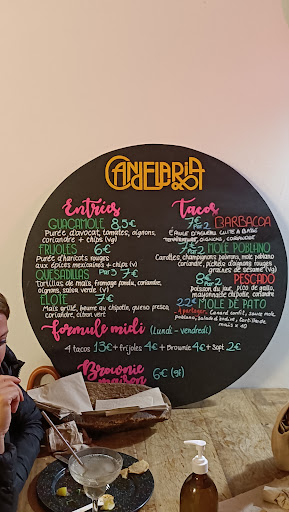 CANDELARIA
Entries
GUACAMOLE 8,5€
Purée d'avocat, tomates, oignons,
coriandre + chips (vg)
FRIJOLES 6€
Purée d'haricots rouges
aux épices mexicaines + chips (v)
QUESADILLAS Par 3 7€
Tortillas de maïs, fromage fondu, coriandre,
oignons, salsa verde (v)
ELOTE 7€
Maïs grillé, beurre au chipotle, queso fresco
coriandre, citron vert
Tacos
7€ Par 2 BARBACOA
coriandre
7€ Par 2 MOLE POBLANO
Carottes, champignons, poivrons, mole poblano
coriandre, pickels d'oignons rouges,
graines de sésame (vg)
8€ Par 2 PESCADO
Poisson du jour, pico de gallo,
mayonnaise chipotle, coriandre
22€ MOLE DE PATO
à partager Canard confit, sauce mole
poblano, salade
maïs x 10
Formule midi (Lundi - vendredi)
4 tacos 13€ + frijoles 4€ + Brownie 4€ + Sopt 2€
Brownie
maison 6€ (gf)